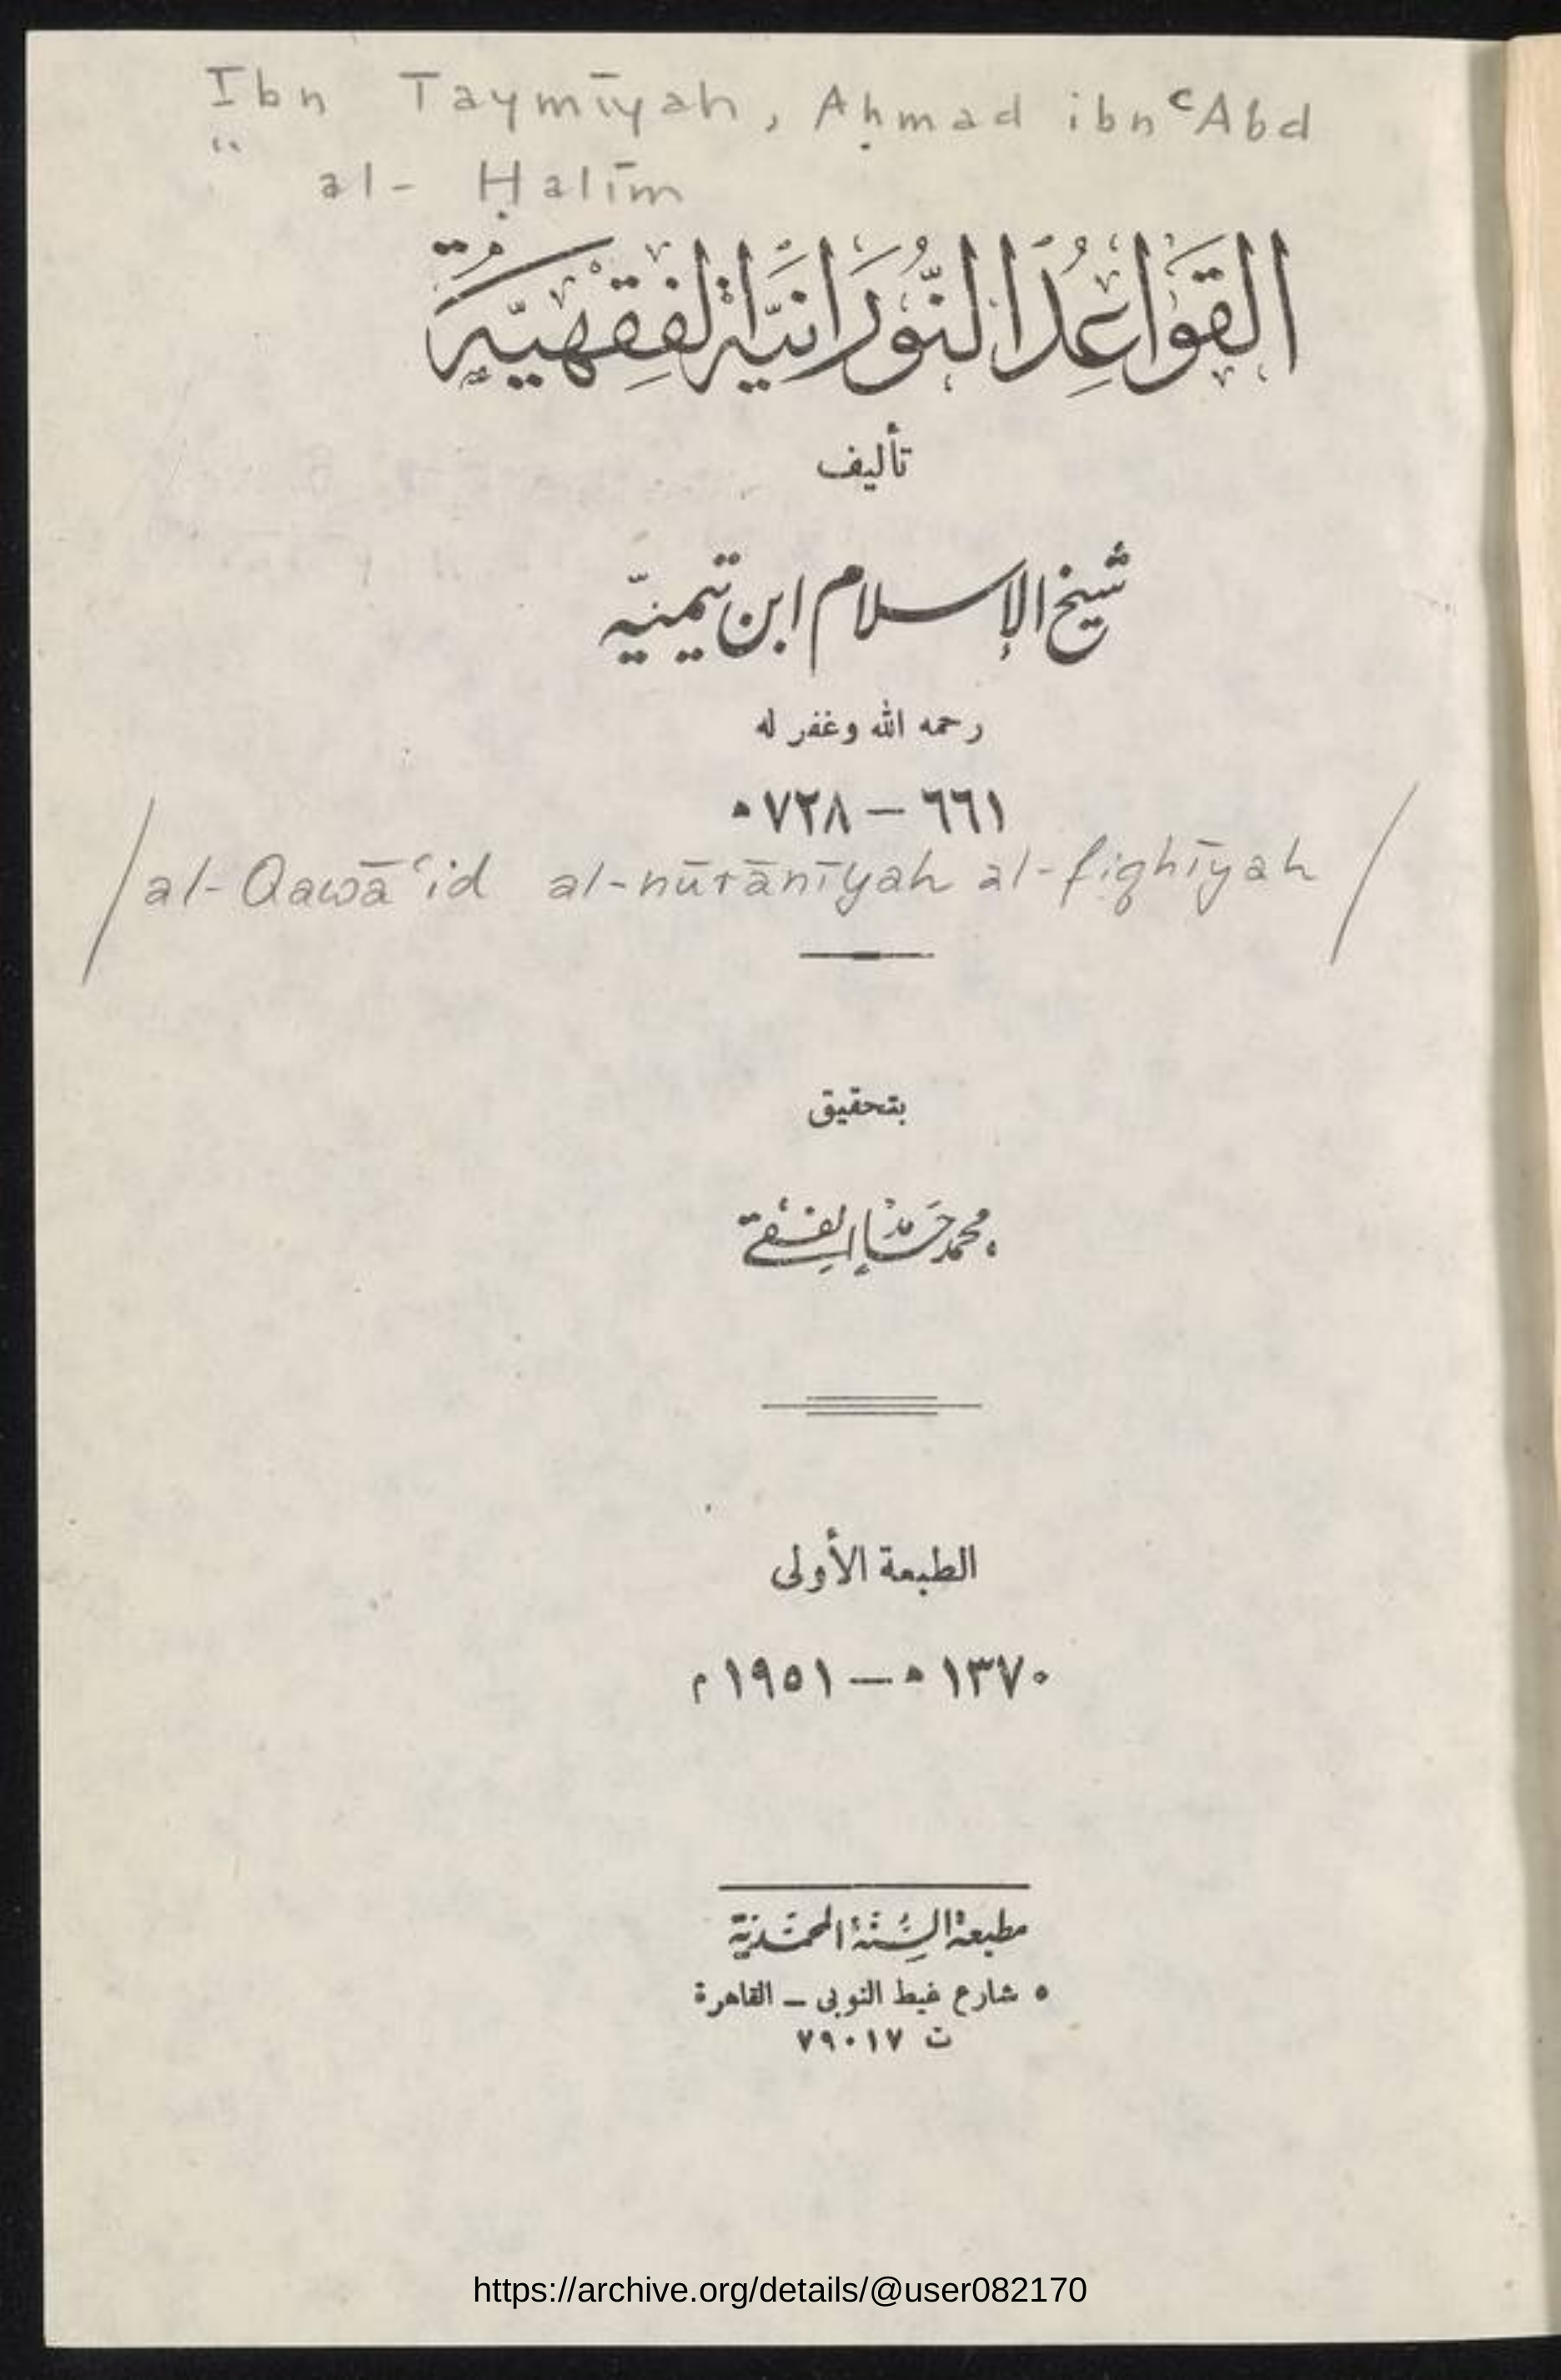 Ibn Taymīyah, Aḥmad ibn ʿAbd
" al-Ḥalīm
القَوَاعِدُ النُّورَانيَّة الفِقهيَّة
تأليف
شيخ الإسلام ابن تيميّة
رحمه الله وغفر له
٦٦١ — ٧٢٨ ھ
/ al-Qawāʿid al-nūrānīyah al-fiqhīyah /
بتحقيق
محمد حامد الفقي
الطبعة الأولى
١٣٧٠ ھ — ١٩٥١ م
مطبعة السُّنَّة المحمَّدية
٥ شارع غيط النوبى — القاهرة
ت ٧٩٠١٧
https://archive.org/details/@user082170